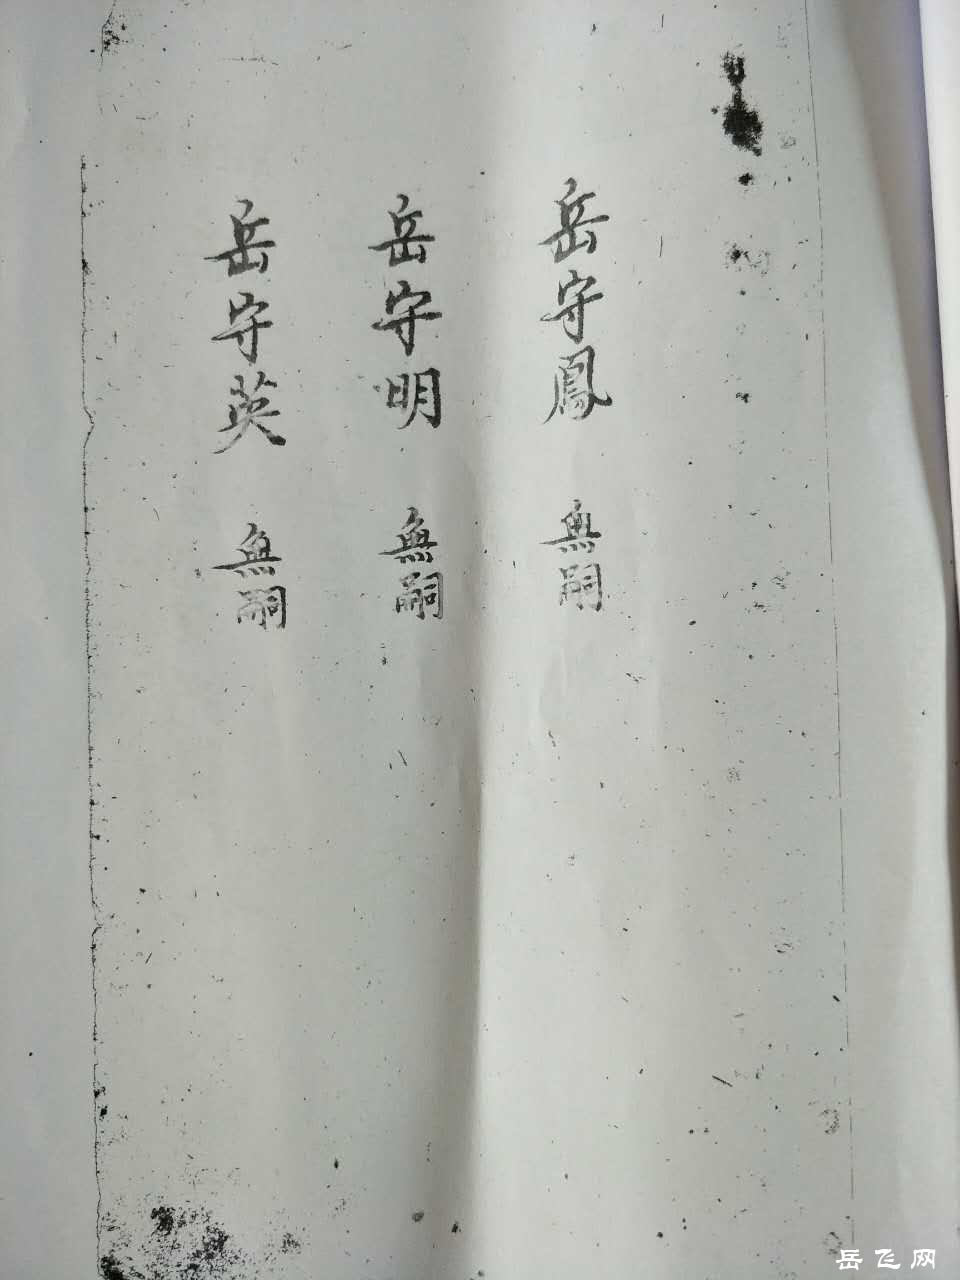 岳守鳳 無嗣
岳守明 無嗣
岳守英 無嗣
岳飞网